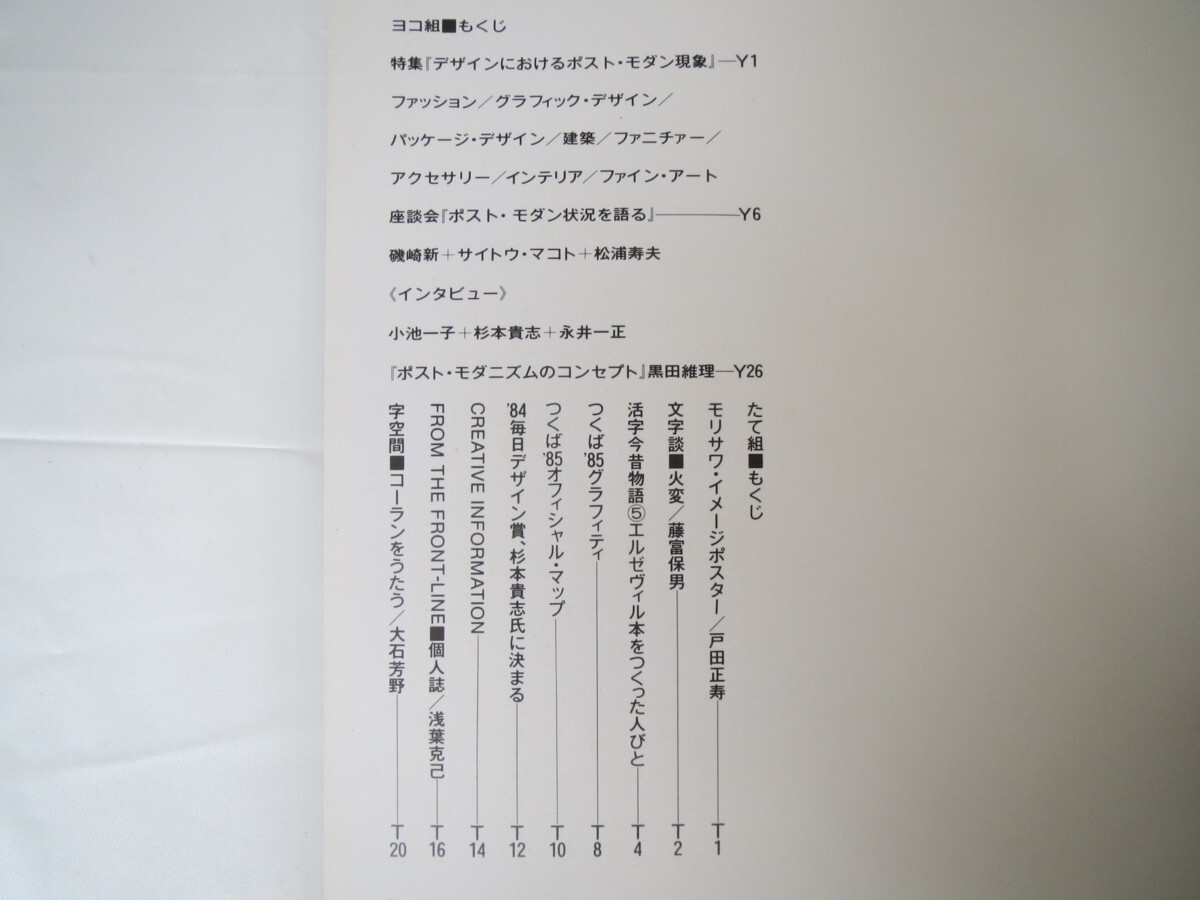 ヨコ組■もくじ
特集『デザインにおけるポスト・モダン現象』—Y1
ファッション／グラフィック・デザイン／
パッケージ・デザイン／建築／ファニチャー／
アクセサリー／インテリア／ファイン・アート
座談会『ポスト・モダン状況を語る』———Y6
磯崎新＋サイトウ・マコト＋松浦寿夫
《インタビュー》
小池一子＋杉本貴志＋永井一正
『ポスト・モダニズムのコンセプト』黒田維理—Y26
たて組■もくじ
モリサワ・イメージポスター／戸田正寿———T1
文字談■火変／藤富保男———T2
活字今昔物語⑤エルゼヴィル本をつくった人びと———T4
つくば'85グラフィティ———T8
つくば'85オフィシャル・マップ———T10
'84毎日デザイン賞、杉本貴志氏に決まる———T12
CREATIVE INFORMATION———T14
FROM THE FRONT-LINE■個人誌／浅葉克己———T16
字空間■コーランをうたう／大石芳野———T20